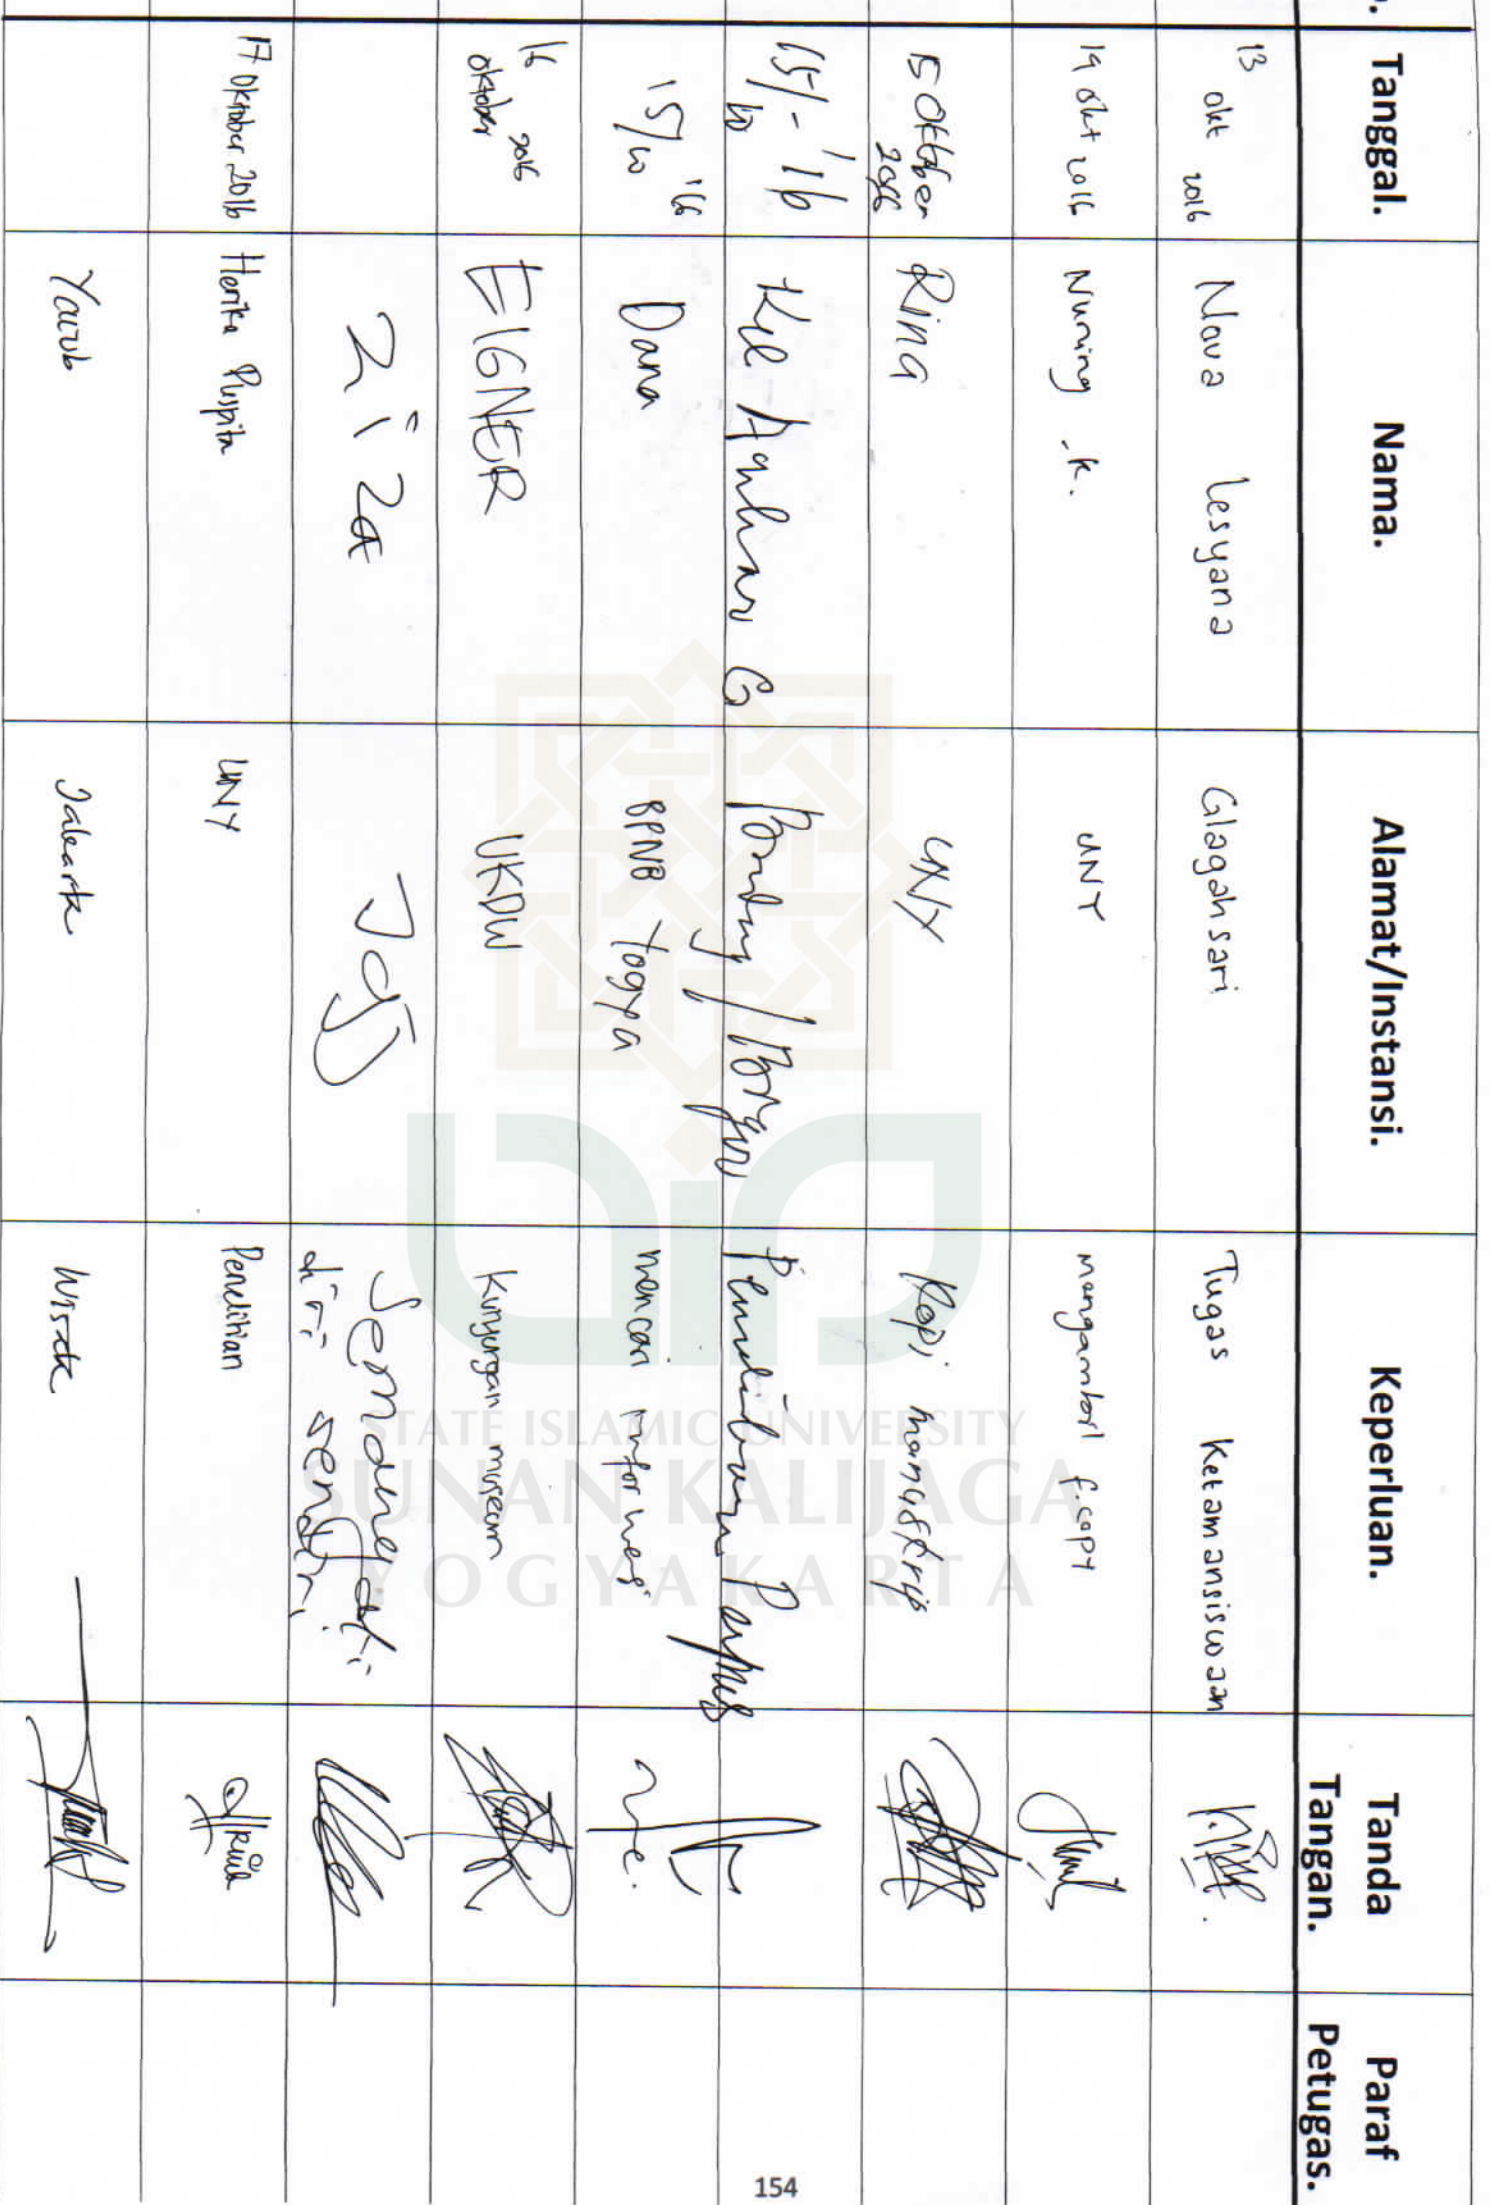 Tanggal. Nama. Alamat/Instansi. Keperluan. Tanda Tangan. Paraf Petugas.
13 okt 2016 Nova Lesyana Glagahsari Tugas Ketamansiswaan
14 okt 2016 Nuning .K. UNY mengambil f.copy
15 Oktober 2016 Rina UNY Kopi manuskrip
15/10 - '16
15/10 '16 Dana BPNB Yogya mencari informasi
16 oktober 2016 EIGNER UKDW Kunjungan museum
ziza Jogj
diri sendiri
17 Oktober 2016 Herika Puspita UNY Penelitian
Jakarta
STATE ISLAMIC UNIVERSITY
SUNAN KALIJAGA
YOGYAKARTA
154